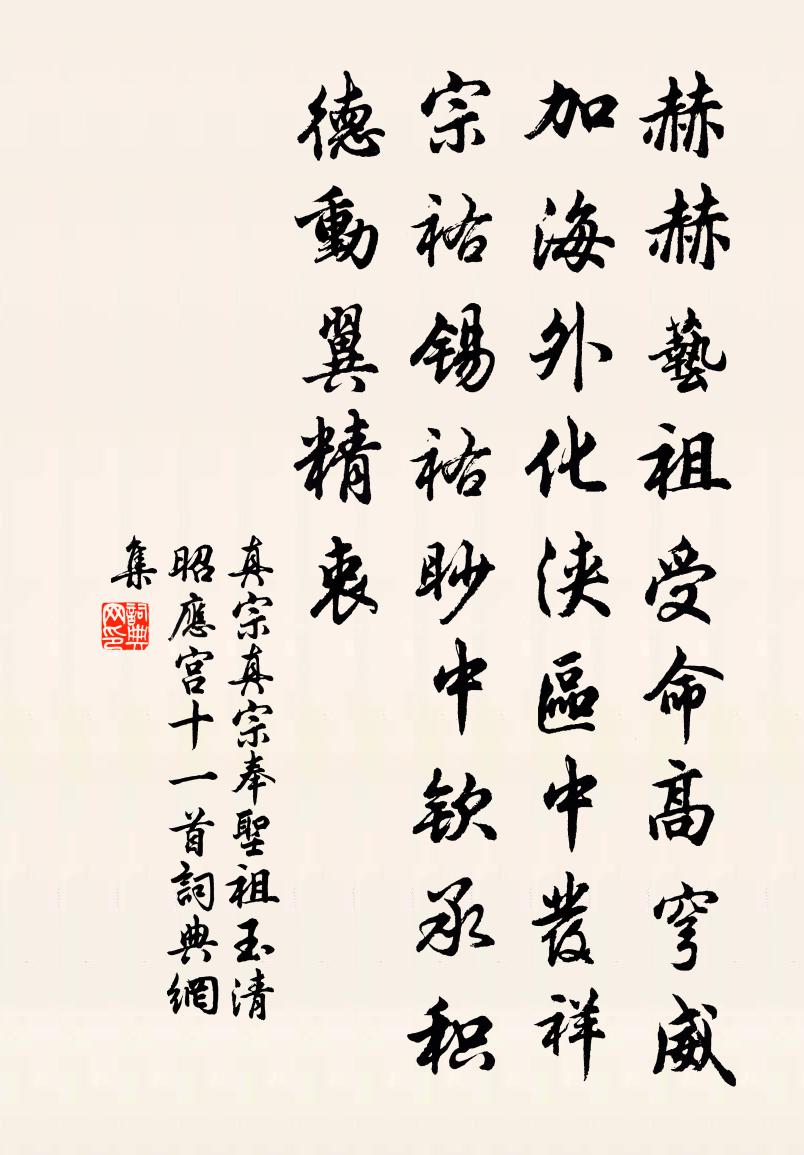 赫赫藝祖受命高穹威
加海外化浹區中發祥
宗祐錫祐眇中欽承积
德動翼精衷
真宗真宗奉聖祖玉清
昭應宮十一首詞典網
集
詞典网印